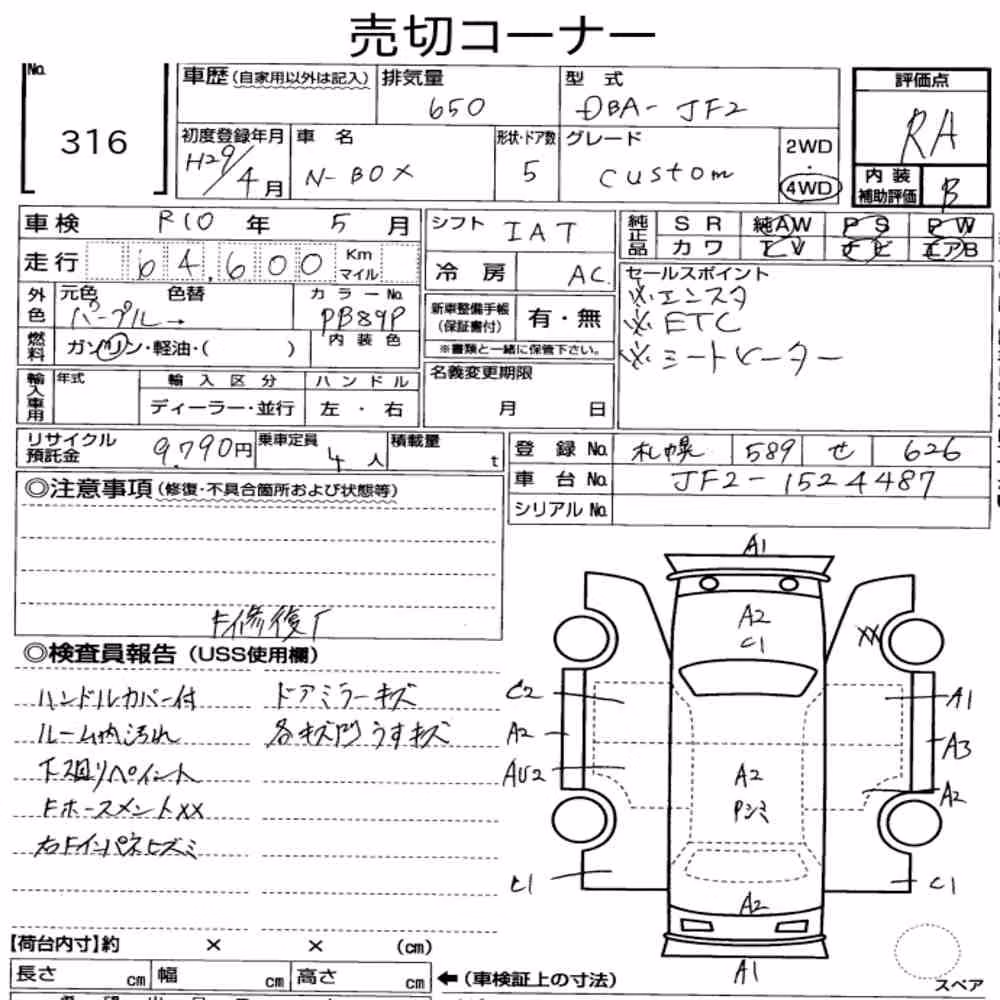 売切コーナー
No.
316
車歴(自家用以外は記入)
排気量
650
型 式
DBA-JF2
評価点
RA
初度登録年月
H29/4月
車 名
N-BOX
形状・ドア数
5
グレード
custom
2WD
・
4WD
内装
補助評価
B
車検 R10年 5月
シフト IAT
純正品
SR 純AW PS PW
カワ TV ナビ エアB
走行 64,600 Km
マイル
冷房 AC
セールスポイント
※エンスタ
※ETC
※シートヒーター
外色
元色 色替
パープル→
カラーNo.
PB89P
新車整備手帳
(保証書付)
有・無
※書類と一緒に保管下さい。
燃料
ガソリン・軽油・( )
内装色
輸入車用
年式
輸入区分
ディーラー・並行
ハンドル
左・右
名義変更期限
月 日
リサイクル
預託金
9,790円
乗車定員
4人
積載量
t
登録No. 札幌 589 せ 626
車台No. JF2-1524487
シリアルNo.
◎注意事項(修復・不具合箇所および状態等)
F修復
◎検査員報告(USS使用欄)
ハンドルカバー付 ドアミラーキズ
ルーム内汚れ 各キズ凹うすキズ
下廻りペイント
Fホースメントxx
右Fインパネヒズミ
A1
A2
C1
XX
C2
A1
A2
A3
AU2
A2
A2
Pシミ
C1
C1
A2
A1
スペア
【荷台内寸】約 × × (cm)
長さ cm 幅 cm 高さ cm
←(車検証上の寸法)